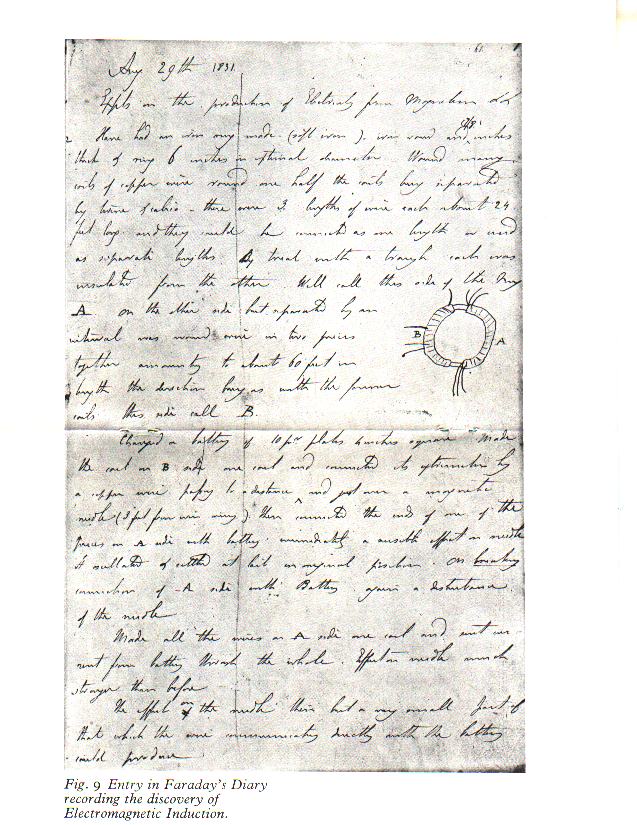 61
Aug 29th 1831
Expts on the production of Electricity from Magnetism &c &c
Have had an iron ring made (soft iron), iron round and 7/8 inches
thick & ring 6 inches in external diameter. Wound many
coils of copper wire round one half the coils being separated
by twine & calico - there were 3 lengths of wire each about 24
feet long and they could be connected as one length or used
as separate lengths. By trial with a trough each was
insulated from the other. Will call this side of the ring
A. on the other side but separated by an
interval was wound wire in two pieces
together amounting to about 60 feet in
length the direction being as with the former
coils this side call B.
B A
Charged a battery of 10 pr plates 4 inches square. Made
the coil on B side one coil and connected its extremities by
a copper wire passing to a distance and just over a magnetic
needle (3 feet from iron ring) then connected the ends of one of the
pieces on A side with battery immediately a sensible effect on needle
It oscillated & settled at last in original position. On breaking
connection of A side with Battery again a disturbance
of the needle
Made all the wires on A side one coil and sent cur-
rent from battery through the whole. Effect on needle much
stronger than before
The effect on the needle then but a very small part of
that which the wire communicating directly with the battery
could produce
Fig. 9 Entry in Faraday's Diary
recording the discovery of
Electromagnetic Induction.